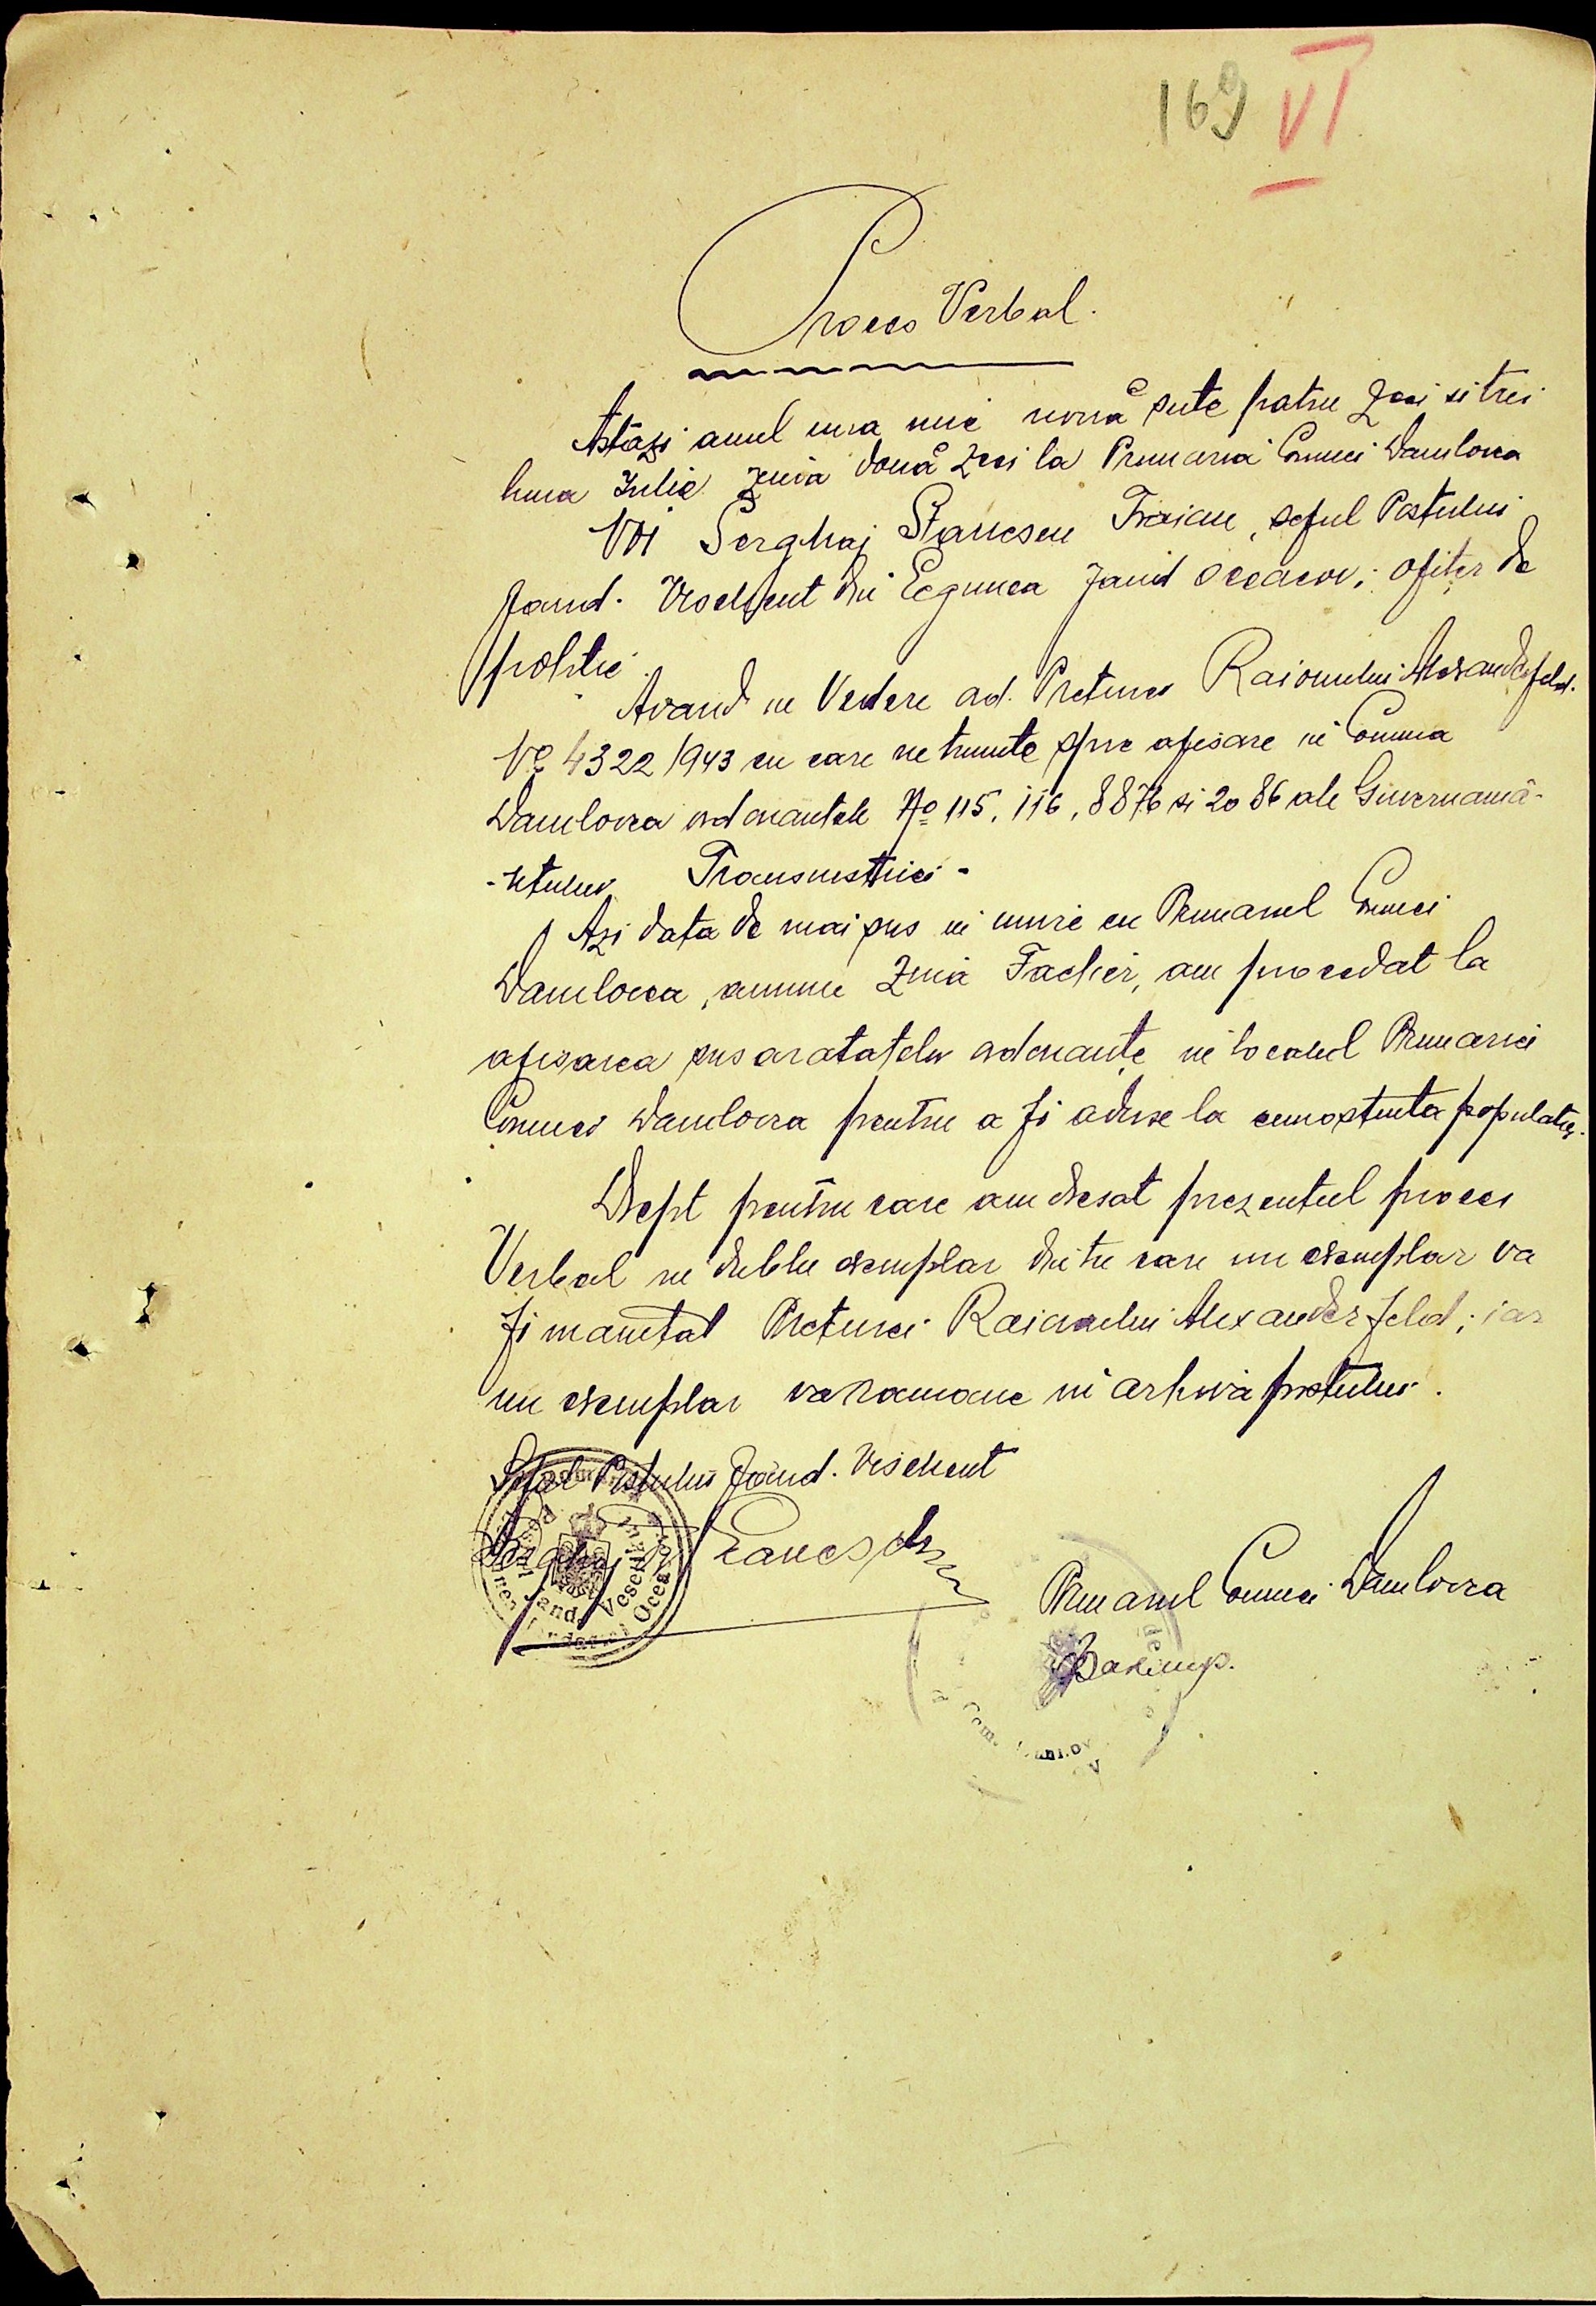 169 VI
Proces Verbal.
Astăzi anul una mie nouă sute patru zeci si trei
luna Iulie ziua două zeci la Primaria Comunei Danilovca
Noi Serghaj Stanescu Traian, seful Postului
Jand. Veselient din Legiunea Jand Oceacov; ofiter de
politie
Avand in Vedere ord. Preturei Raionului Alexanderfeld.
No 4322/943 cu care ne trimite spre afisare in Comuna
Danilovca ordonantele No 115, 116, 8876 si 2086 ale Guvernamă-
-ntului Transnistriei -
Azi data de mai sus in unire cu Primarul Comunei
Danilovca, anume Zinia, am procedat la
afisarea sus aratatelor ordonanțe in localul Primariei
Comunei Danilovca pentru a fi aduse la cunostinta populatiei.
Drept pentru care am dresat prezentul proces
Verbal in dublu exemplar dintre care un exemplar va
fi inaintat Preturei Raionului Alexanderfeld; iar
un exemplar va ramane in arhiva postului.
Seful Postului Jand. Veselient
Primarul Comunei Danilovca